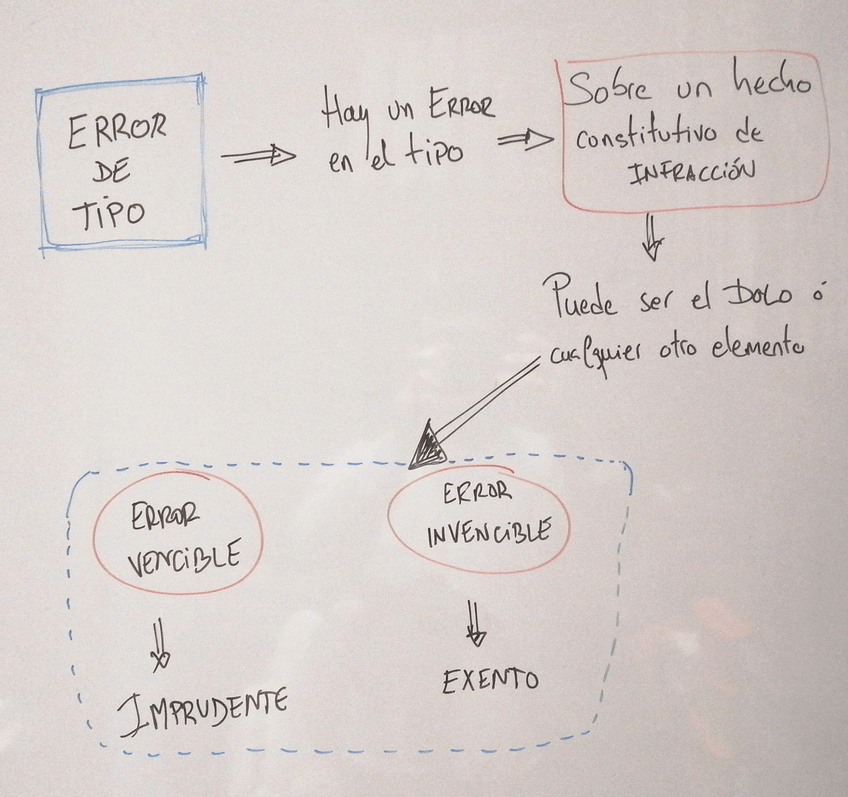 ERROR
DE
TIPO
Hay un ERROR
en el tipo
Sobre un hecho
constitutivo de
INFRACCIÓN
Puede ser el DOLO ó
cualquier otro elemento
ERROR
VENCIBLE
ERROR
INVENCIBLE
IMPRUDENTE
EXENTO